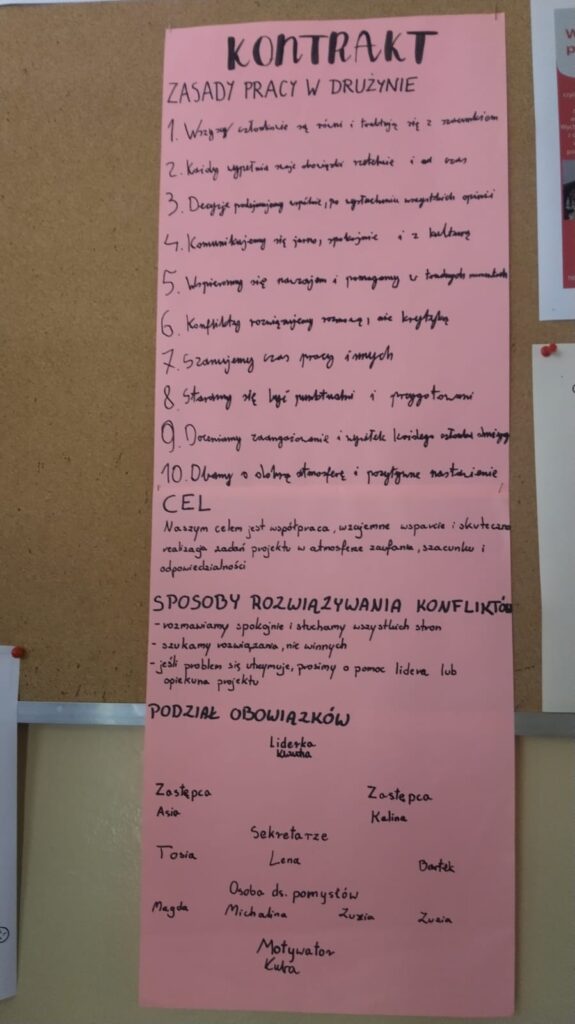 KONTRAKT
ZASADY PRACY W DRUŻYNIE
1. Wszyscy członkowie są równi i traktują się z szacunkiem
2. Każdy wypełnia swoje obowiązki rzetelnie i na czas
3. Decyzje podejmujemy wspólnie, po wysłuchaniu wszystkich opinii
4. Komunikujemy się jasno, spokojnie i z kulturą
5. Wspieramy się nawzajem i pomagamy w trudnych momentach
6. Konflikty rozwiązujemy rozmową, nie krytyką
7. Szanujemy czas pracy innych
8. Staramy się być punktualni i przygotowani
9. Doceniamy zaangażowanie i wysiłek każdego członka drużyny
10. Dbamy o dobrą atmosferę i pozytywne nastawienie
CEL
Naszym celem jest współpraca, wzajemne wsparcie i skuteczna
realizacja zadań projektu w atmosferze zaufania, szacunku i
odpowiedzialności
SPOSOBY ROZWIĄZYWANIA KONFLIKTÓW
- rozmawiamy spokojnie i słuchamy wszystkich stron
- szukamy rozwiązania, nie winnych
- jeśli problem się utrzymuje, prosimy o pomoc lidera lub
opiekuna projektu
PODZIAŁ OBOWIĄZKÓW
Liderka
Zastępca Zastępca
Asia Kalina
Sekretarze
Tosia Lena Bartek
Osoba ds. pomysłów
Magda Michalina Zuzia Zuzia
Motywator
Kuba